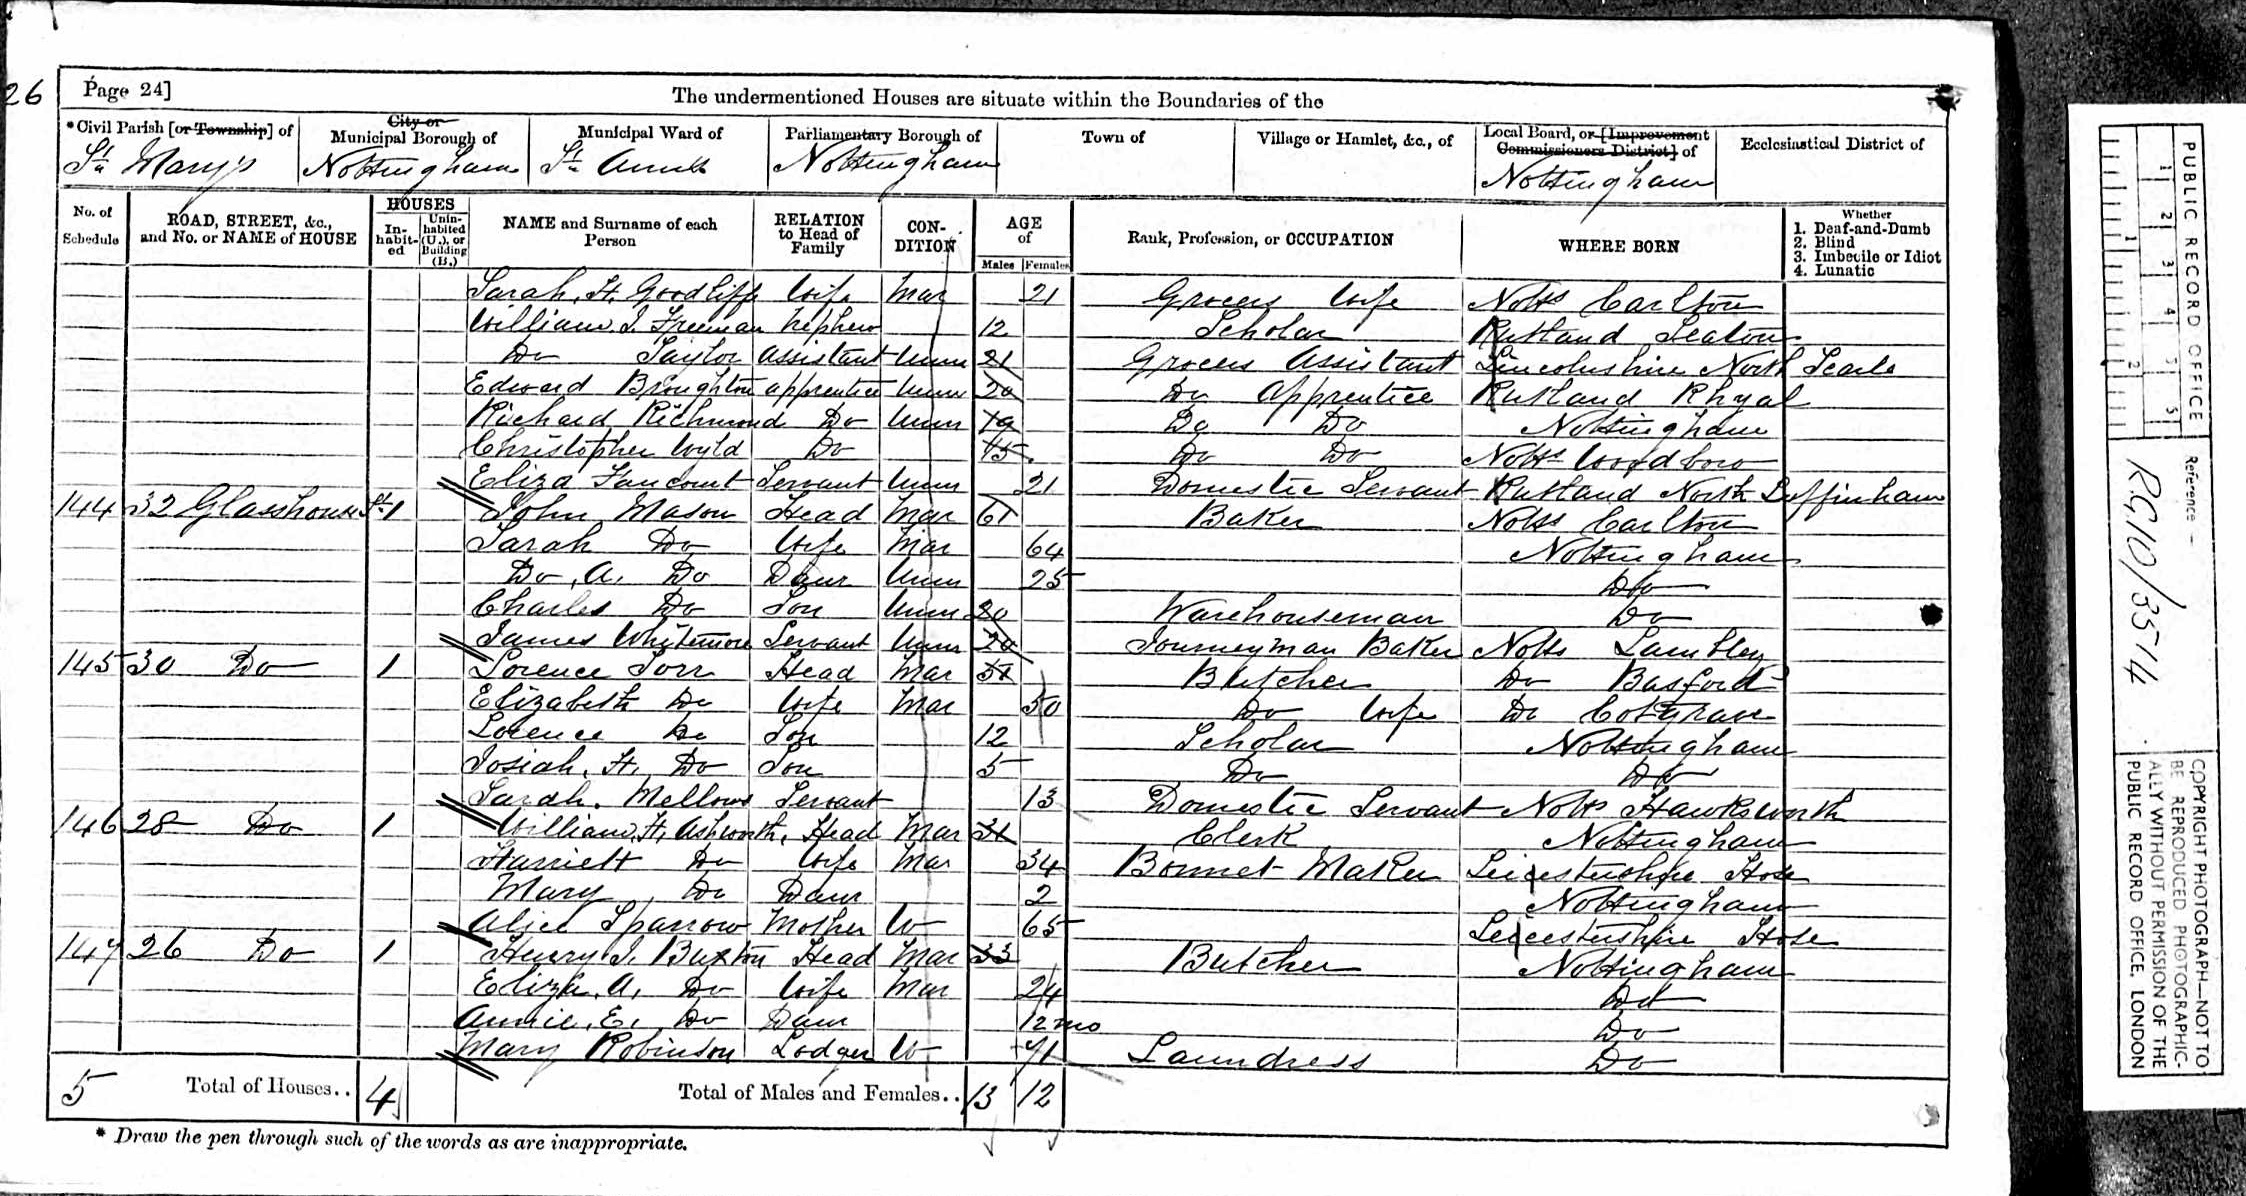 26
Page 24]
The undermentioned Houses are situate within the Boundaries of the
*Civil Parish [or Township] of
City or Municipal Borough of
Municipal Ward of
Parliamentary Borough of
Town of
Village or Hamlet, &c., of
Local Board, or [Improvement Commissioners District] of
Ecclesiastical District of
St Mary's Nottingham St Anns Nottingham Nottingham
No. of Schedule
ROAD, STREET, &c., and No. or NAME of HOUSE
HOUSES
In-habit-ed
Unin-habited (U.), or Building (B.)
NAME and Surname of each Person
RELATION to Head of Family
CON-DITION
AGE of
Males Females
Rank, Profession, or OCCUPATION
WHERE BORN
Whether
1. Deaf-and-Dumb
2. Blind
3. Imbecile or Idiot
4. Lunatic
Sarah. H. Goodliff Wife Mar 21 Grocers Wife Notts Carlton
William J. Freeman Nephew 12 Scholar Rutland Seaton
Do Taylor Assistant Unm 21 Grocers Assistant Lincolnshire North Scarle
Edward Broughton apprentice Unm 20 Do Apprentice Rutland Rhyal
Richard Richmond Do Unm 19 Do Do Nottingham
Christopher Wyld Do 15 Do Do Notts Woodboro
Eliza Fancourt Servant Unm 21 Domestic Servant Rutland North Luffinham
144 32 Glasshouse St 1 John Mason Head Mar 61 Baker Notts Carlton
Sarah Do Wife Mar 64 Nottingham
Do. A. Do Daur Unm 25 Do
Charles Do Son Unm 20 Warehouseman Do
James Whitemore Servant Unm 20 Journeyman Baker Notts Lambley
145 30 Do 1 Lorence Torr Head Mar 51 Butcher Do Basford
Elizabeth Do Wife Mar 50 Do Wife Do Cotgrave
Lorence Do Son 12 Scholar Nottingham
Josiah. H. Do Son 5 Do Do
Sarah. Mellows Servant 13 Domestic Servant Notts Hawksworth
146 28 Do 1 William. H. Ashworth. Head Mar 31 Clerk Nottingham
Harriett Do Wife Mar 34 Bonnet Maker Leicestershire Hose
Mary Do Daur 2 Nottingham
Alice Sparrow Mother W 65 Leicestershire Hose
147 26 Do 1 Henry J. Buxton Head Mar 33 Butcher Nottingham
Eliza. A. Do Wife Mar 24 Do
Annie. E. Do Daur 12 mo Do
Mary Robinson Lodger W 71 Laundress Do
5 Total of Houses.. 4 Total of Males and Females.. 13 12
* Draw the pen through such of the words as are inappropriate.
PUBLIC RECORD OFFICE
1 2 3 4 5
1 2
Reference —
RG10/3514
COPYRIGHT PHOTOGRAPH—NOT TO BE REPRODUCED PHOTOGRAPHIC-ALLY WITHOUT PERMISSION OF THE PUBLIC RECORD OFFICE, LONDON